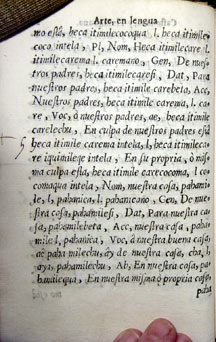 Arte, en lengua
mo esta, heca itimileccocoquà l, heca itimile
coco intela, Pl, Nom, Heca itimilecare l.
itimilecarema l. caremano, Gen, De nues
tros padres, heca itimilecaresi, Dat, Para
nuestros padres, heca itimile carebeta, Acc,
Nuestros padres, heca itimile carema, l. ca
re, Voc, ò nuestros padres, ae, heca itimile
carelechu, En culpa de nuestros padres està
heca itimile carema intela, l, heca itimileca
re iquimile intela, En su propria, ò mis
ma culpa està, heca itimile carecocoma, l. co
comaqua intela, Nom, nuestra casa, pahami
le, l, pahanica, l. pahanicano, Gen, De nues
tra casa, pahamilesi, Dat, Para nuestra ca
sa, pahamilebeta, Acc, nuestra casa, pahi
mile l, pahanica, Voc, ò nuestra buena casa,
aè paha milechu, ay de nuestra casa, cha, h,
aya, pahamilechu, Ab, En nuestra casa, pa
hamilequa, En nuestra misma ò propria casa,
paha